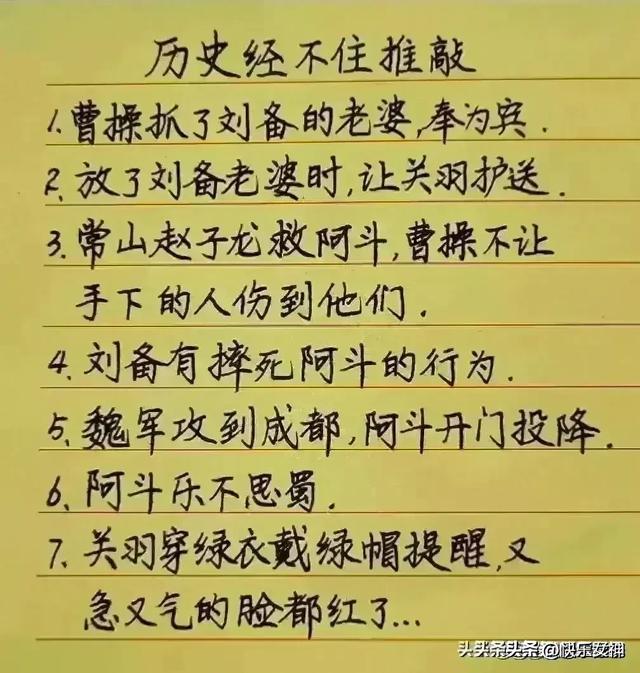 历史经不住推敲
1.曹操抓了刘备的老婆,奉为宾.
2.放了刘备老婆时,让关羽护送.
3.常山赵子龙救阿斗,曹操不让
手下的人伤到他们.
4.刘备有摔死阿斗的行为.
5.魏军攻到成都,阿斗开门投降.
6.阿斗乐不思蜀.
7.关羽穿绿衣戴绿帽提醒,又
急又气的脸都红了...
头条 @快乐女神